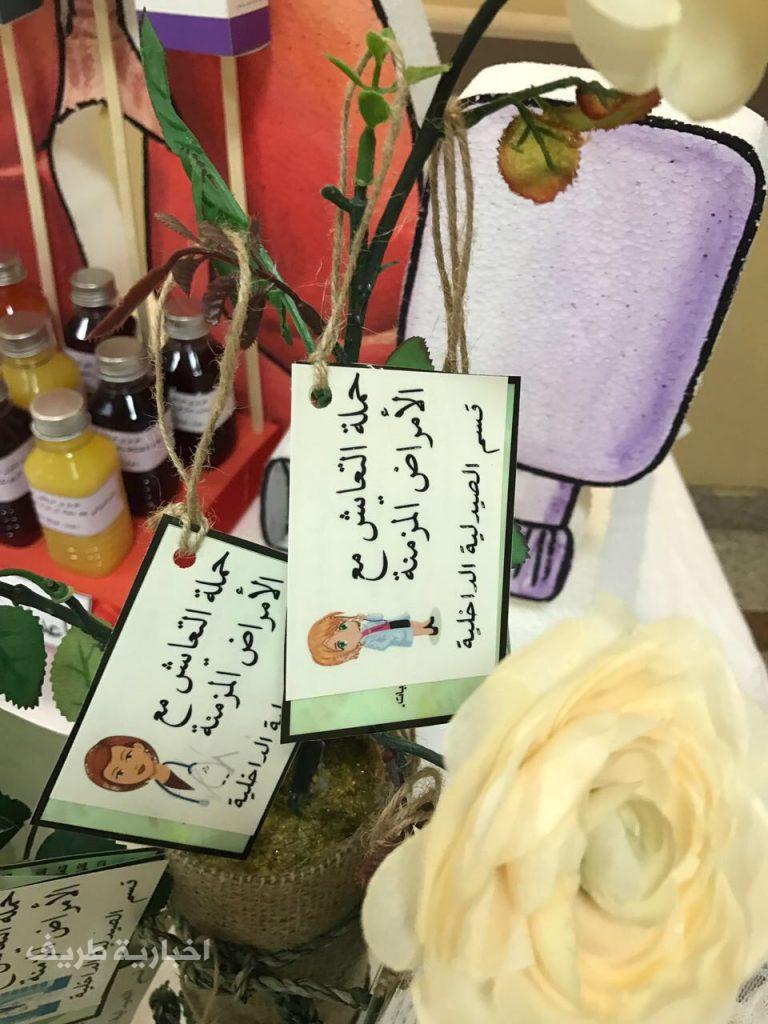 حملة التعايش مع
الأمراض المزمنة
قسم الصيدلية الداخلية
حملة التعايش مع
الأمراض المزمنة
الداخلية
الأمراض
قسم الصيدلية الداخلية
اخبارية طريف